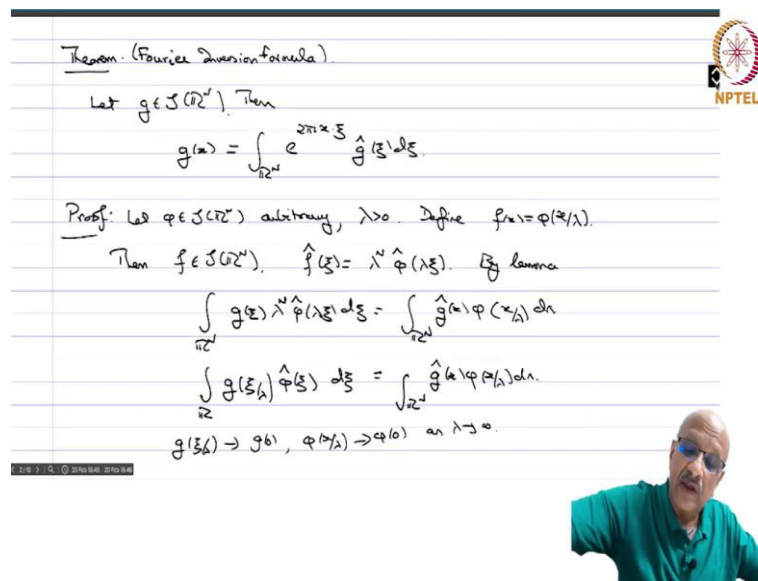 Theorem. (Fourier Inversion formula).
NPTEL
Let g ∈ S(ℝᴺ). Then
g(x) = ∫_{ℝᴺ} e^{2πix·ξ} ĝ(ξ)dξ.
Proof: Let φ ∈ S(ℝᴺ) arbitrary, λ>0. Define f(x) = φ(x/λ).
Then f ∈ S(ℝᴺ). f̂(ξ) = λᴺ φ̂(λξ). By lemma
∫_{ℝᴺ} g(ξ) λᴺ φ̂(λξ) dξ = ∫_{ℝᴺ} ĝ(x) φ(x/λ) dx
∫_ℝ g(ξ/λ) φ̂(ξ) dξ = ∫_{ℝᴺ} ĝ(x) φ(x/λ) dx.
g(ξ/λ) → g(0), φ(x/λ) → φ(0) as λ→∞.
2/10